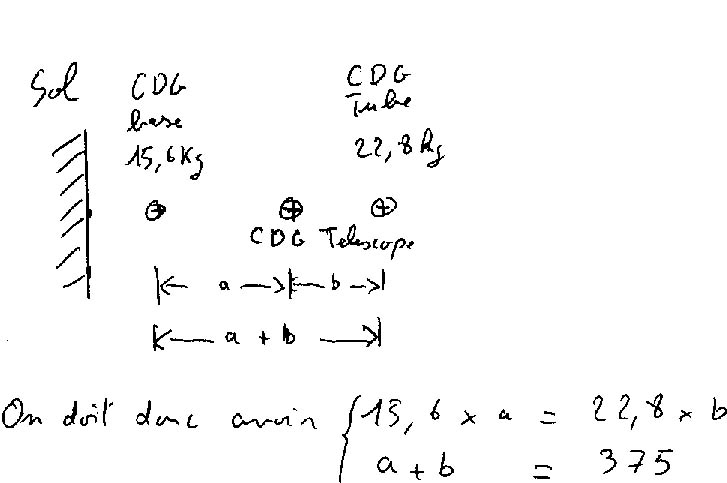 Sol
CDG
base
15,6 Kg
CDG
Tube
22,8 Kg
CDG Telescope
a
b
a + b
On doit donc avoir { 15,6 x a = 22,8 x b
a + b = 375